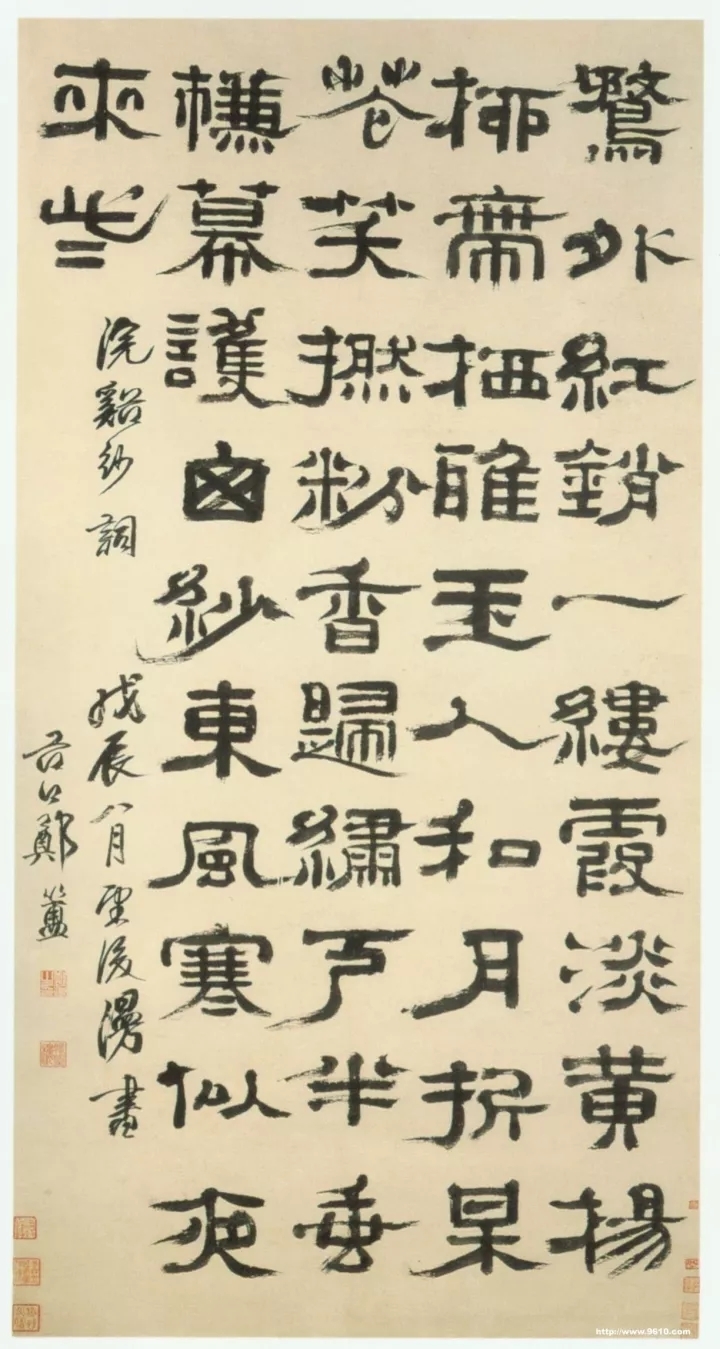 鶩外紅銷一縷霞淡黃揚
桺帶栖雅玉人和月折呆
花笑撚粉香歸繡戶半垂
幕護囱紗東風寒似夜
來些
浣谿紗詞 戊辰八月望後漫書
谷口鄭簠
http://www.9610.com